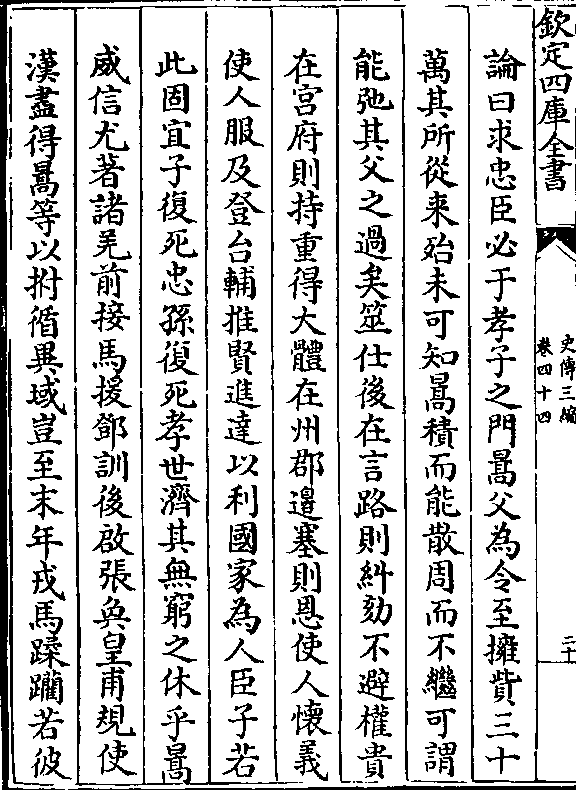 欽定四庫全書
史傳三編
卷四十四
二十
論曰求忠臣必于孝子之門暠父為令至擁貲三十
萬其所從来殆未可知暠積而能散周而不繼可謂
能弛其父之過矣筮仕後在言路則糾劾不避權貴
在宫府則持重得大體在州郡邉塞則恩使人懷義
使人服及登台輔推賢進達以利國家為人臣子若
此固宜子復死忠孫復死孝世濟其無窮之休乎暠
威信尤著諸羌前接馬援鄧訓後啟張奐皇甫規使
漢盡得暠等以拊循異域豈至末年戎馬蹂躪若彼